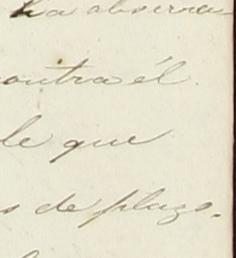 ha observa
ontra él.
le que
s de plazo.